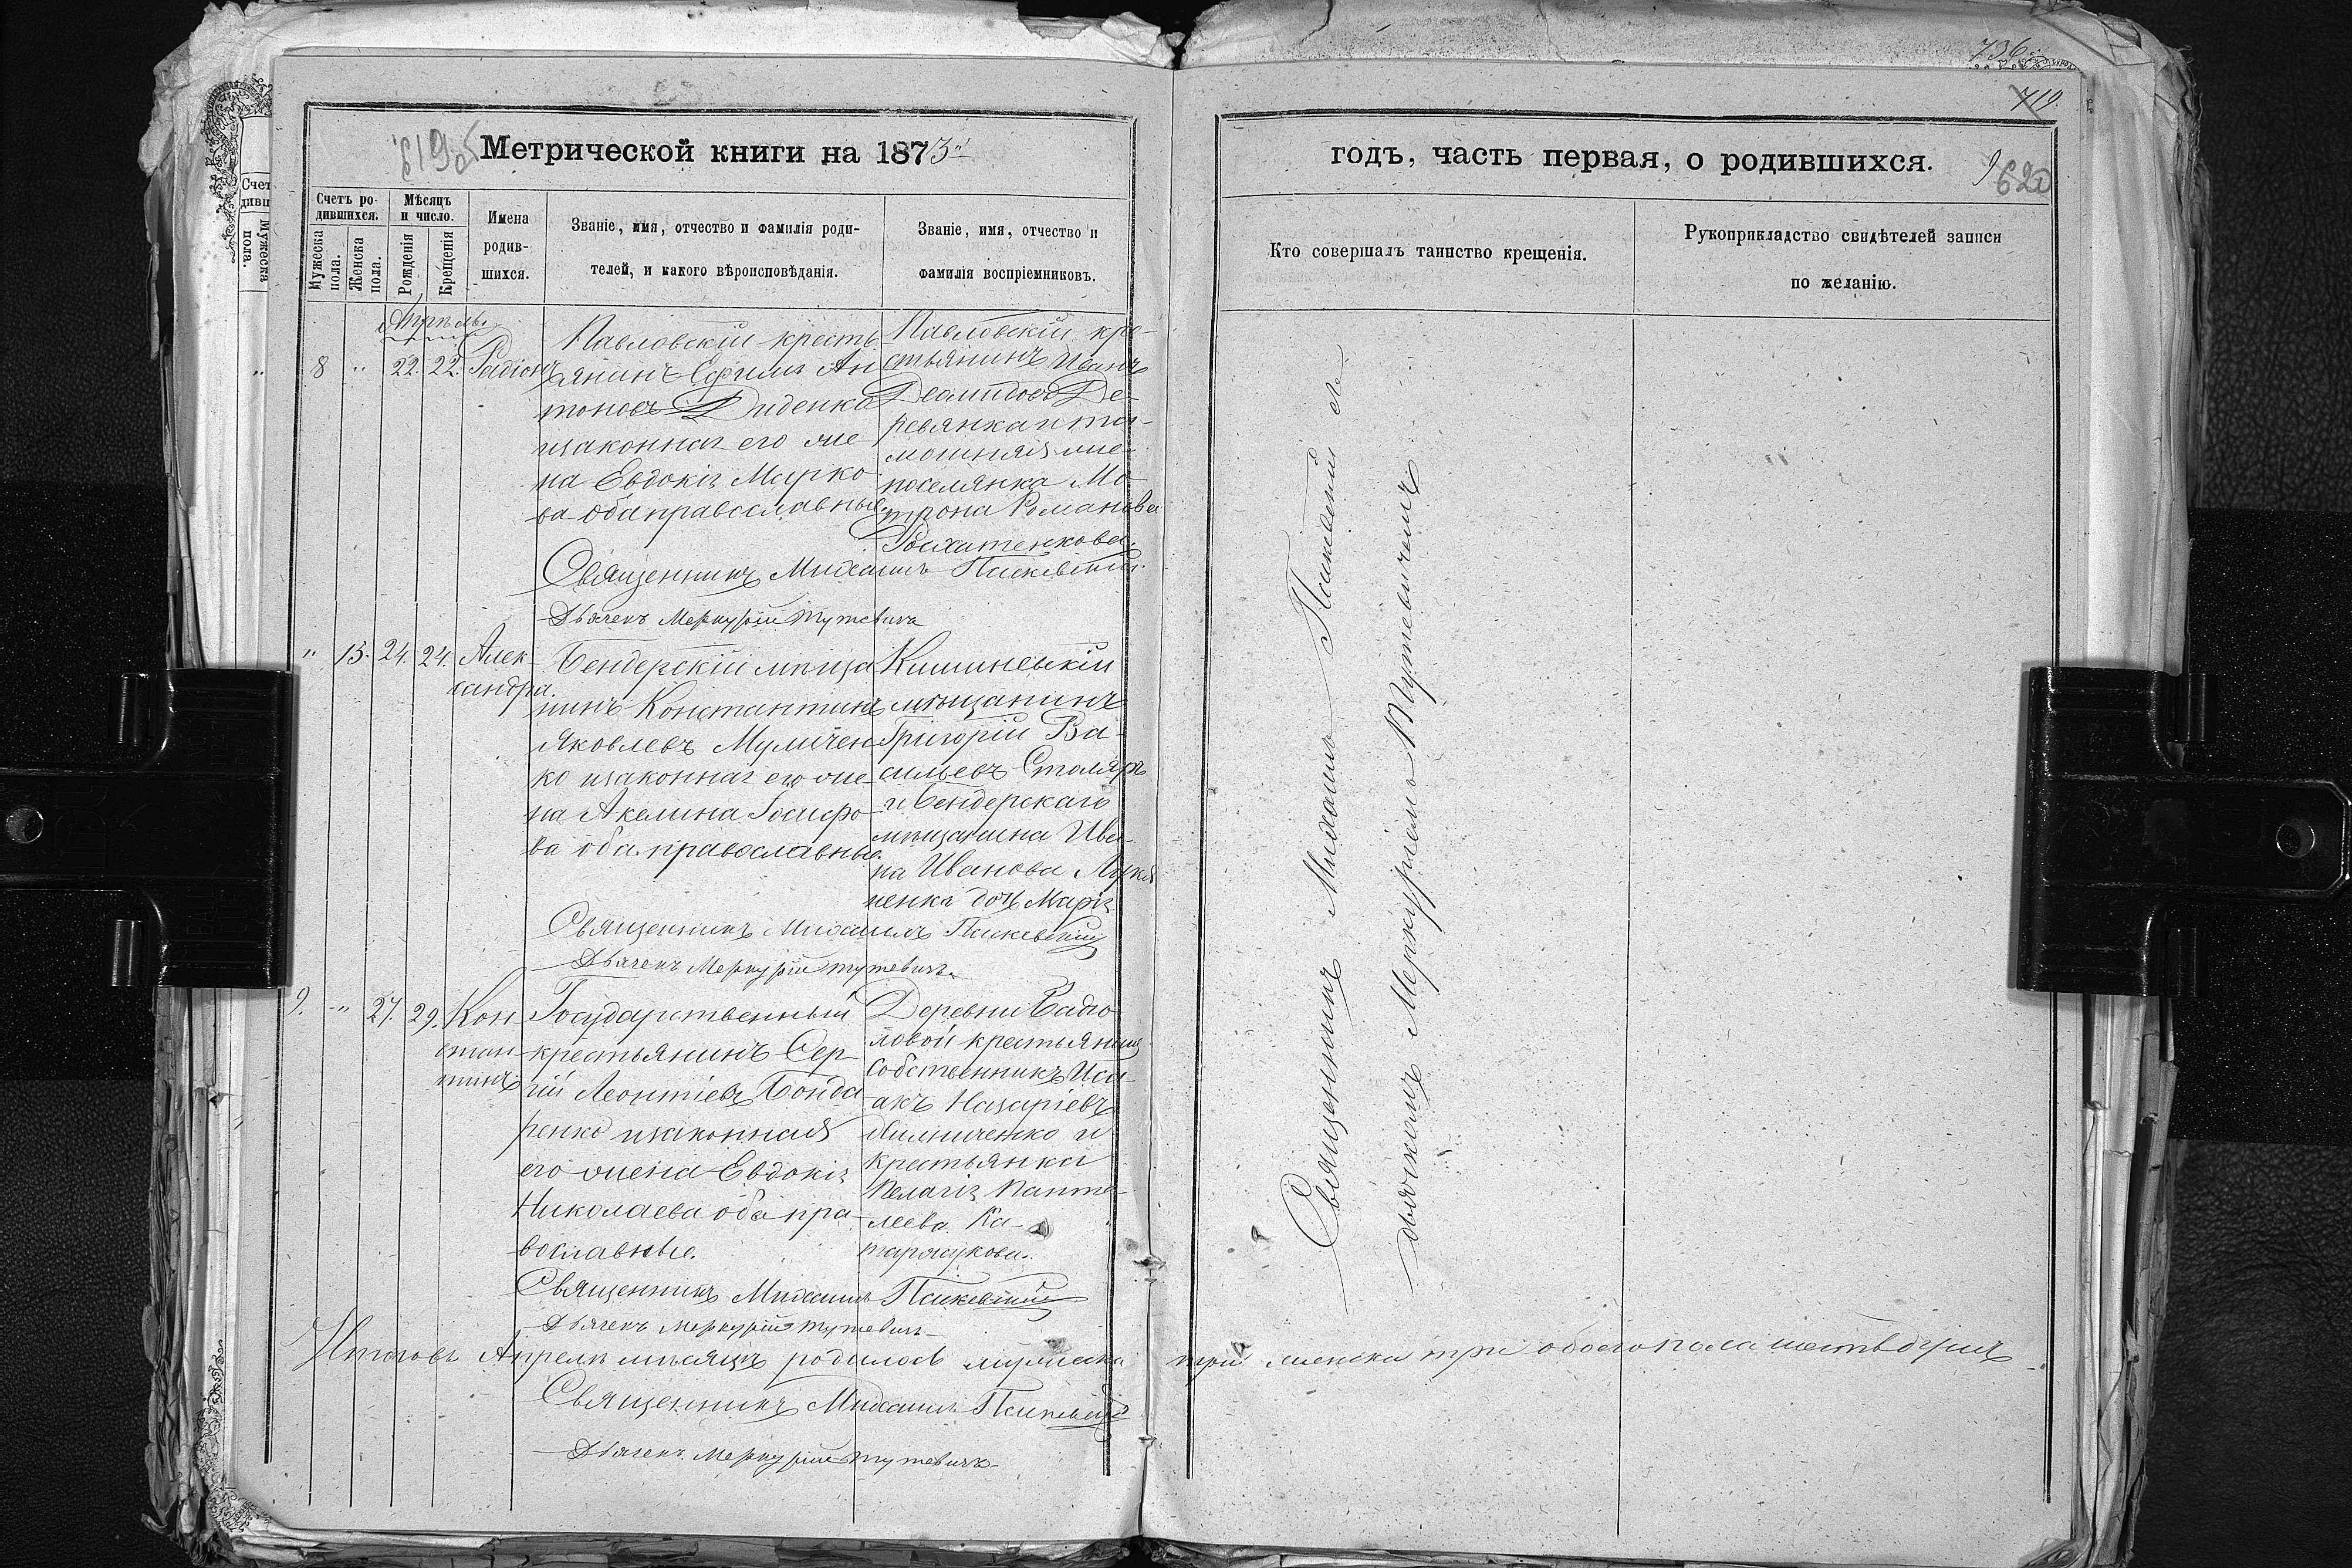 736.
719.
619 об
Метрической книги на 1873й
годъ, часть первая, о родившихся.
620
Счетъ ро-
дившихся.
Мѣсяцъ
и число.
Мужеска
пола.
Женска
пола.
Рожденія
Крещенія
Имена
родив-
шихся.
Званіе, имя, отчество и фамилія роди-
телей, и какого вѣроисповѣданія.
Званіе, имя, отчество и
фамилія воспріемниковъ.
Кто совершалъ таинство крещенія.
Рукоприкладство свидѣтелей записи
по желанію.
Апрѣль
8 " 22. 22. Радіонъ
Павловскій кресть
янинъ Ефимъ Ан
тоновъ Диденко
изаконная его же-
на Евдокія Марко
ва оба православные
Павловскій кре-
стьянинъ Иванъ
Демидовъ Де-
ревянка и та-
мошняя
поселянка Мо-
трона Романова
Священникъ Михаилъ
Дьячекъ Меркурій Тутевичъ
" 13. 24. 24. Алек-
сандра.
Бендерскій мѣща
нинъ Константинъ
Яковлевъ Мулічен
ко изаконная его же-
на Акелина Іосифо
ва оба православные.
Кишиневскій
мѣщанинъ
Григорій Ва-
сильевъ Столяръ
и Бендерскаго
мѣщанина Ива-
на Иванова
ненка дочь Марія
Священникъ Михаилъ
Дьячекъ Меркурій Тутевичъ
9. " 27. 29. Кон
стан
тинъ
Государственный
крестьянинъ Сер-
гій Леонтіевъ Бонда
ренко изаконная
его жена Евдокія
Николаева оба пра
вославные.
Деревни
ловой крестьянинъ
Собственникъ Иса-
акъ Назаріевъ
и
крестьянка
Пелагія Панте-
леева Ка-
Священникъ Михаилъ
Дьячекъ Меркурій Тутевичъ
Итого въ Апрелѣ мѣсяцѣ родилось мужеска три женска три обоего пола шесть душъ
Священникъ Михаилъ
Дьячекъ Меркурій Тутевичъ
Священникъ Михаилъ
дьячкомъ Меркуріемъ Тутевичемъ